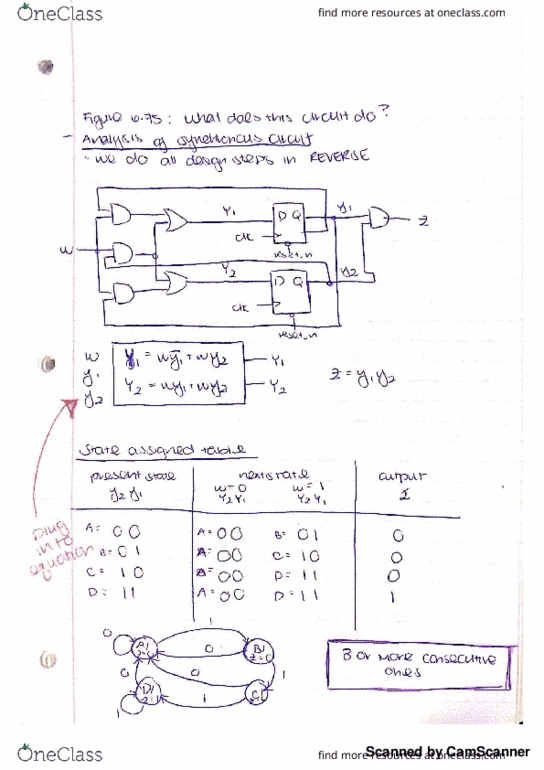 OneClass
find more resources at oneclass.com
Figure 6.75: What does this circuit do?
Analysis of synchronous circuit
- we do all design steps in REVERSE
Y1
D Q
y1
z
clk
reset_n
w
Y2
D Q
y2
clk
reset_n
w
y1
y2
Y1 = wȳ1 + wy2
Y2 = wy1 + wy2
Y1
Y2
z = y1y2
State assigned table
present state
next state
output
y2 y1
w=0
w=1
z
Y2Y1
Y2 Y1
A= 00
A= 00
B= 01
0
B= 01
A= 00
C= 10
0
C= 10
A= 00
D= 11
0
D: 11
A= 00
D= 11
1
plug
into
equation
0
A/
z=0
1
0
B/
z=0
0
0
1
D/
z=1
1
C/
1
3 or more consecutive
ones
OneClass
find more resources at oneclass.com
Scanned by CamScanner